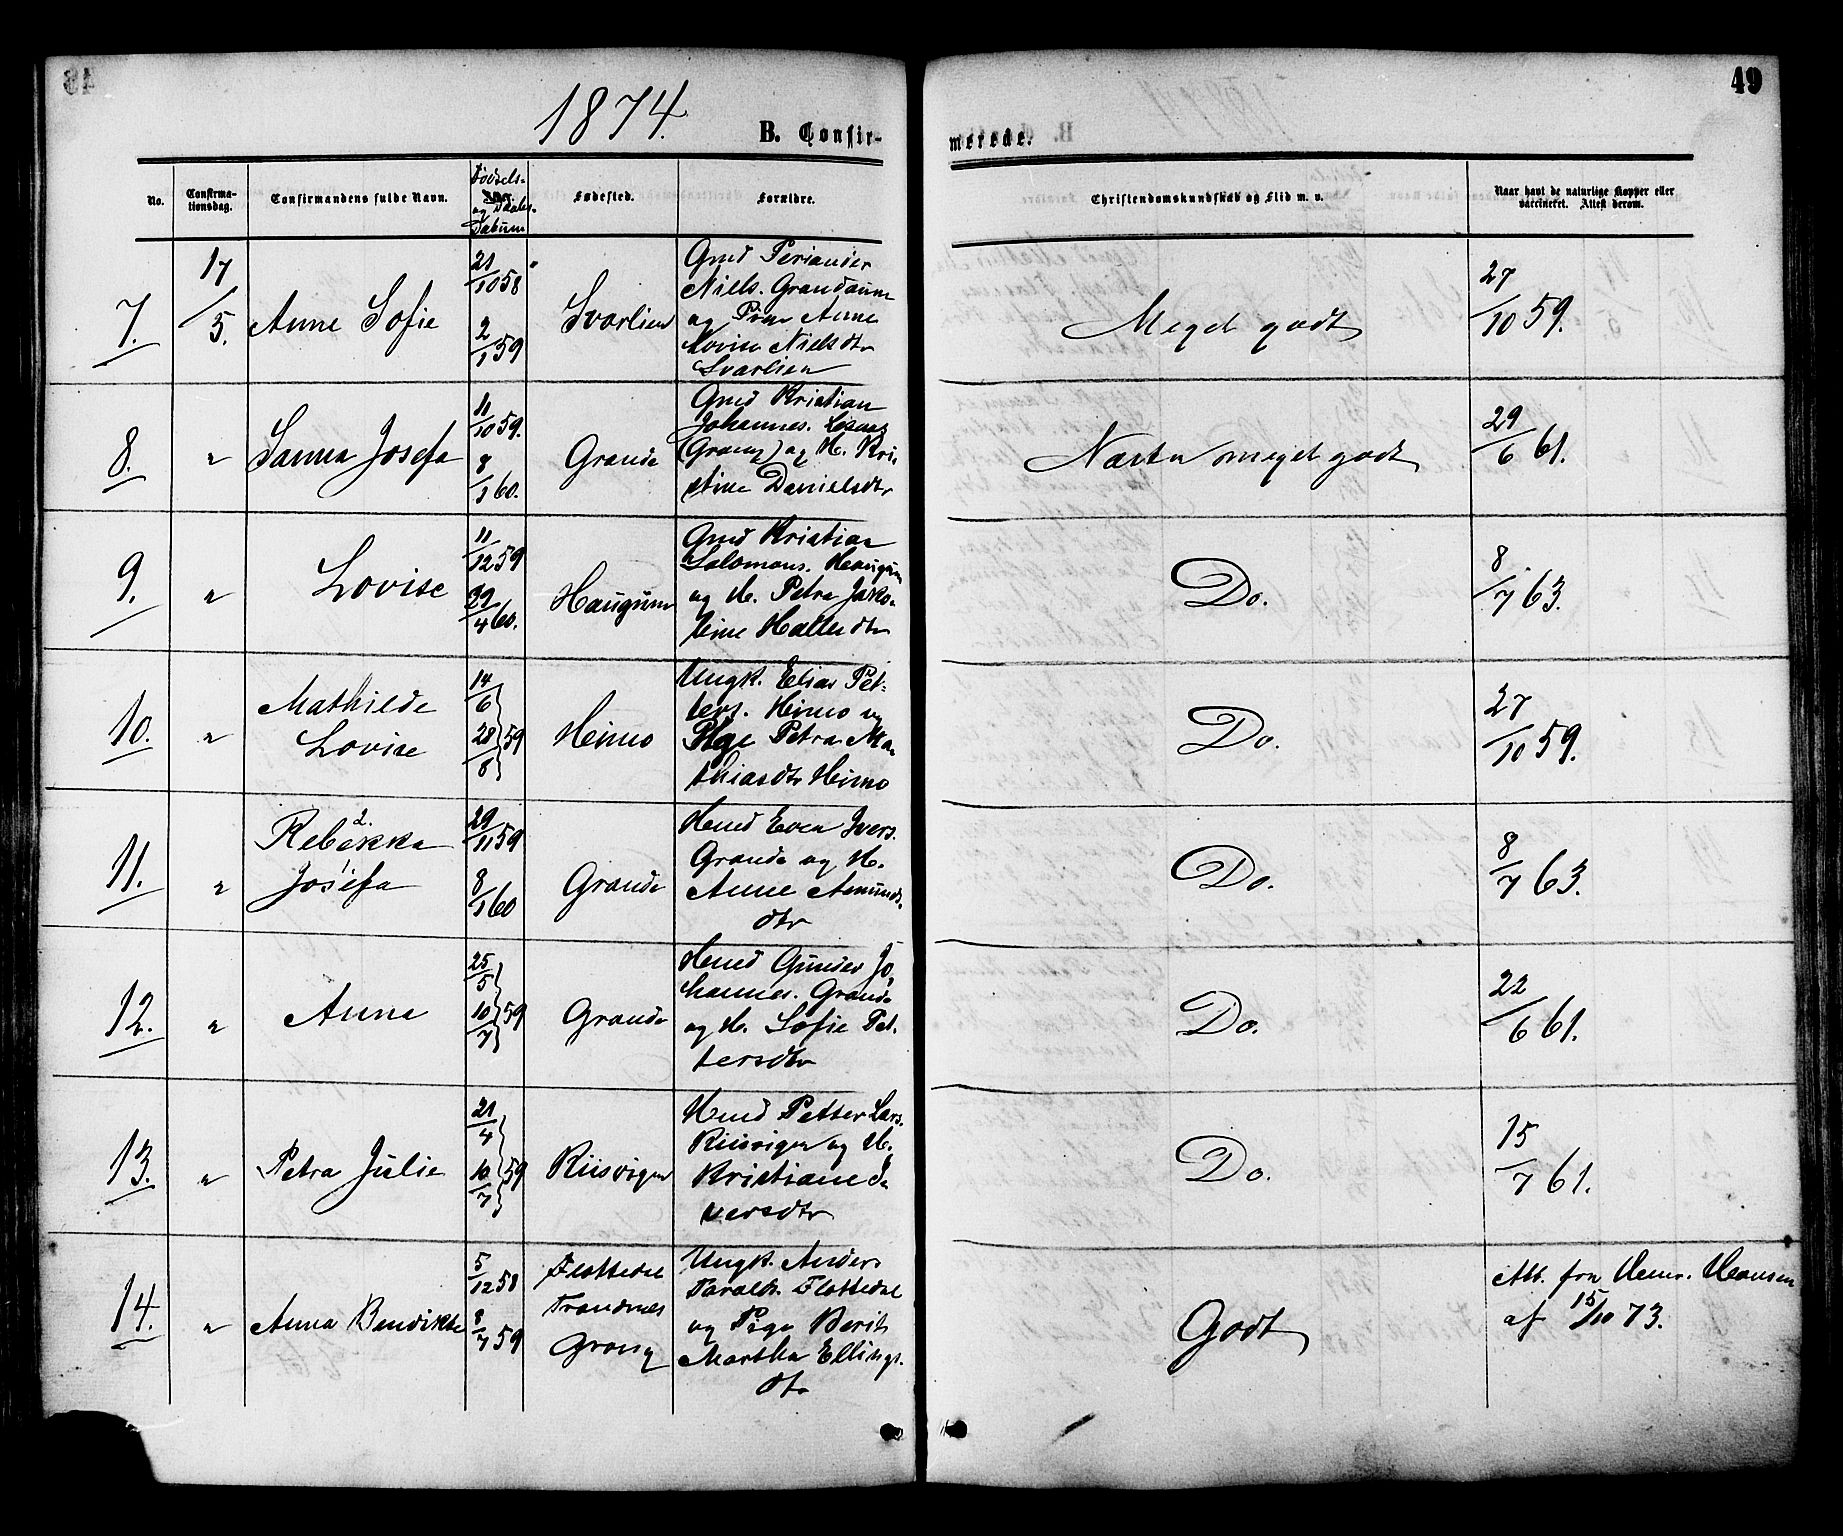 49
1874.
B. Confir-
merede.
No.
Confirma-
tionsdag.
Confirmandens fulde Navn.
Fødsels-
og Daabs-
Datum
Fødested.
Forældre.
Christendomskundskab og Flid m. v.
Naar havt de naturlige Kopper eller
vaccineret. Attest derom.
7.
17/5.
Anne Sofie
21/10 58
2/1 59
Svarlien
Gmd Periander
Niels. Grandaune
og Pige Anne
Lovise Nielsdtr
Svarlien
Meget godt
27/10 59.
8.
"
Sanna Josefa
11/10 59.
8/1 60.
Grande
Gmd Kristian
Johannes.
(Grong) og H. Kri-
stine Danielsdtr
Næsten meget godt
29/6 61.
9.
"
Lovise
11/12 59
29/4 60.
Haugum
Gmd Kristian
Salomons. Haugum
og H. Petra Jako-
bine Hallesdtr
Do.
8/7 63.
10.
"
Mathilde
Lovise
14/6
28/8 59
Heimo
Ungk. Elias Pet-
ters. Heimo og
Pige Petra Ma-
thiasdtr Heimo
Do.
27/10 59.
11.
"
2.
Rebekka
Josefa
29/11 59
8/1 60
Grande
Hmd Even Ivers.
Grande og H.
Anne Amunds-
dtr
Do.
8/7 63.
12.
"
Anna
25/5
10/7 59
Grande
Hmd Gunder Jo-
hannes. Grande
og H. Sofie Pet-
tersdtr
Do.
22/6 61.
13.
"
Petra Julie
21/4
10/7 59
Riisvigen
Hmd Petter Lars.
Riisvigen og H.
Kristiane I-
versdtr
Do.
15/7 61.
14.
"
Anna Bendikte
5/12 58
8/7 59
Flottedal
Trandnes
Grong
Ungk. Anders
Taralds. Flottedal
og Pige Berit
Martha Ellings-
dtr
Godt
Att. fra Hemr. Hansen
af 15/10 73.